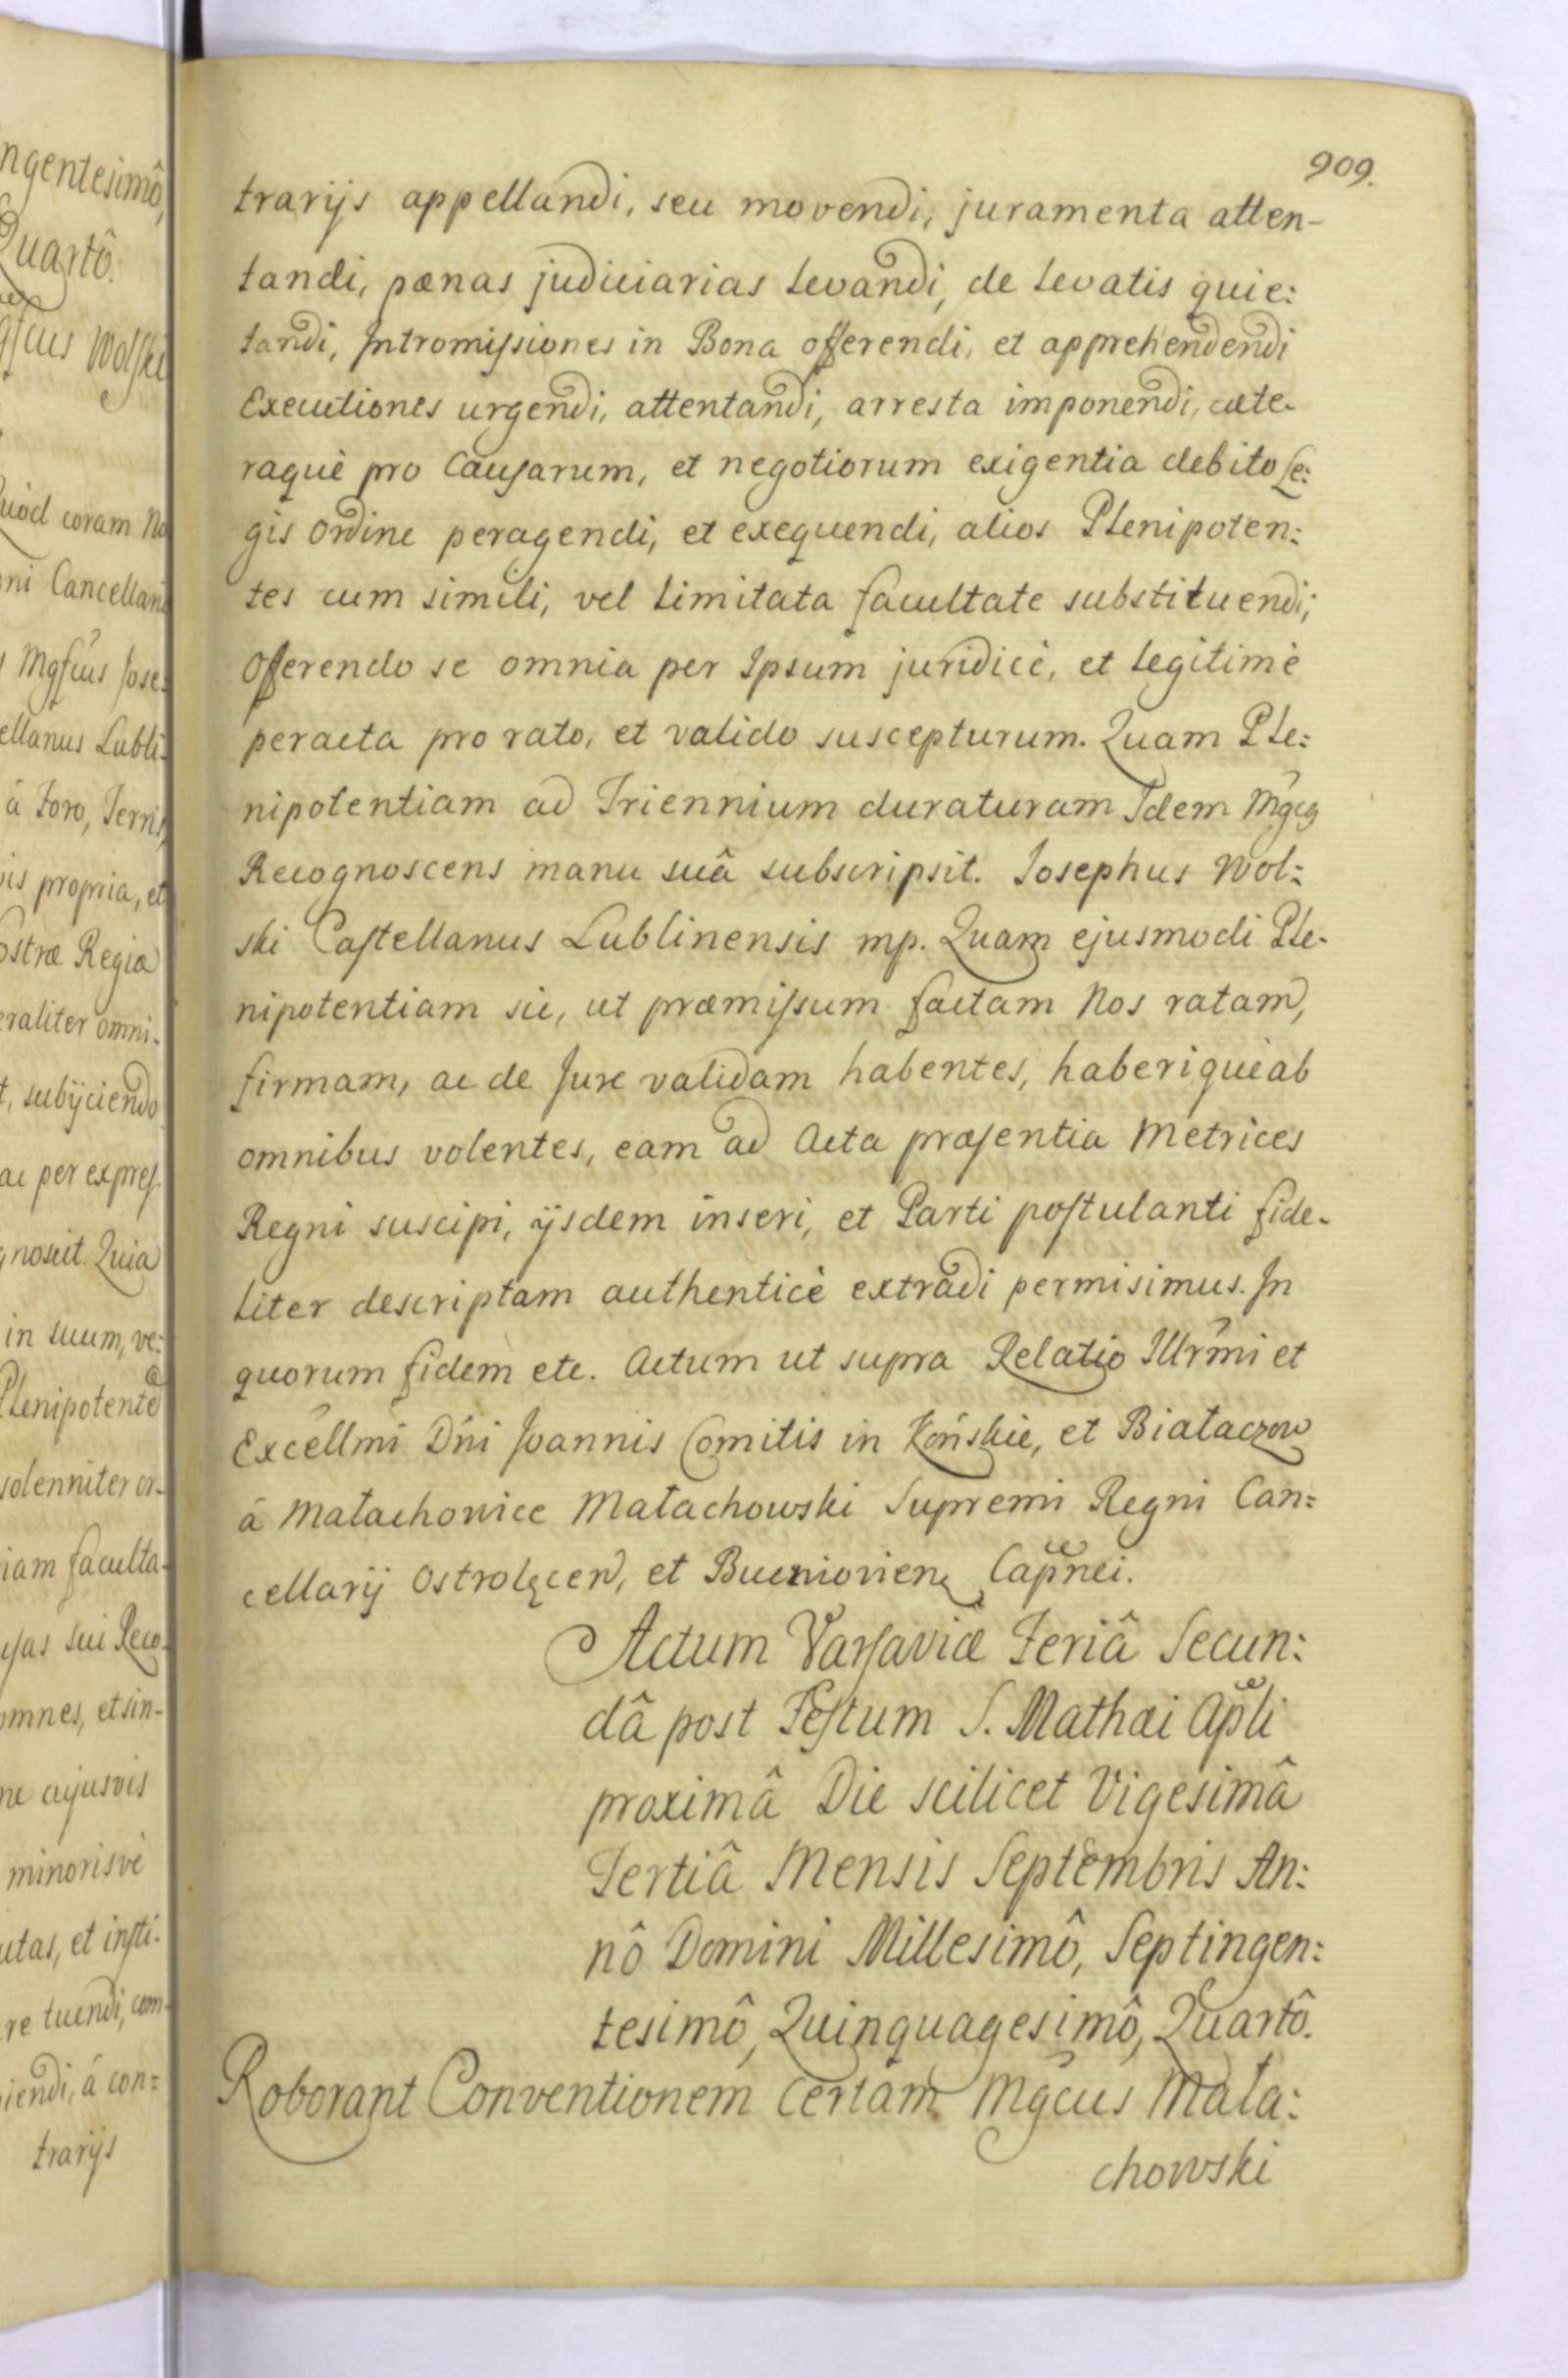 909.
trarijs appellandi, seu movendi, juramenta atten-
tandi, pænas judiciarias levandi, de levatis quie:
tandi, Intromissiones in Bona offerendi, et apprehendendi
Executiones urgendi, attentandi, arresta imponendi, cæte-
raquè pro Causarum, et negotiorum exigentia debito Le:
gis Ordine peragendi, et exequendi, alios Plenipoten:
tes cum simili, vel limitata facultate substituendi;
Offerendo se omnia per Ipsum juridicè, et legitimè
peracta pro rato, et valido suscepturum. Quam Ple:
nipotentiam ad Triennium duraturam Idem Mgcg
Recognoscens manu suâ subscripsit. Josephus Wol:
ski Castellanus Lublinensis mp. Quam ejusmodi Ple-
nipotentiam sic, ut præmissum factam Nos ratam,
firmam, ac de Jure validam habentes, haberiquè ab
omnibus volentes, eam ad Acta præsentia Metrices
Regni suscipi, ijsdem inseri, et Parti postulanti fide-
liter descriptam authenticè extradi permisimus. In
quorum fidem etc. Actum ut supra Relatio Illrmi et
Excellmi Dni Joannis Comitis in Końskie, et Białaczow
â Małachowice Małachowski Supremi Regni Can:
cellarij Ostrolęcen, et Capnei.
Actum Varsaviæ Feriâ Secun:
dâ post Festum S. Mathæi Apli
proximâ Die scilicet Vigesimâ
Tertiâ Mensis Septembris An:
nô Domini Millesimô, Septingen:
tesimô, Quinquagesimô, Quartô.
Roborant Conventionem certam Mgcus Mała:
chowski
ngentesimô,
Quartô.
Wolski
coram No
ni Cancellari
Mgfcus Jose:
ellanus Lubli-
â Foro, Terris,
is propria, et
ostræ Regiæ
eraliter omni-
t, subijciendo
ac per expres-
gnoscit. Quia
in suum, ve:
Plenipotente
solenniter or-
iam faculta-
usas sui Reco-
omnes, et sin-
ne cujusvis
minorisvè
utas, et insti-
re tuendi, com-
iendi, â con=
trarijs